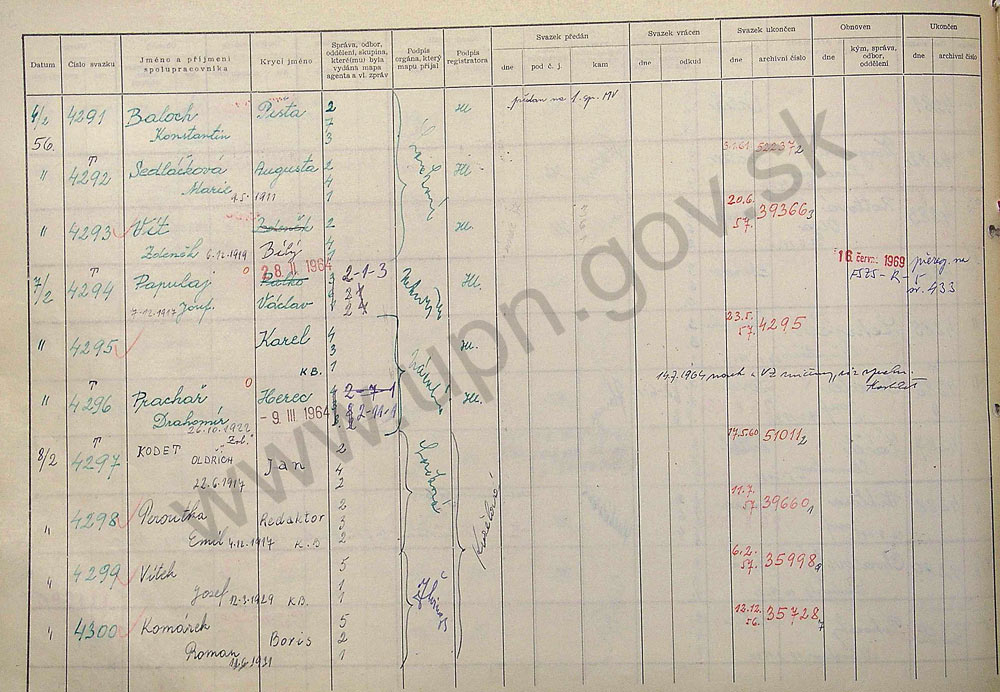 Datum
Číslo svazku
Jméno a příjmení
spolupracovníka
Krycí jméno
Správa, odbor,
oddělení, skupina,
které(mu) byla
vydána mapa
agenta a vl. zpráv
Podpis
orgána, který
mapu přijal
Podpis
registratora
Svazek předán
dne
pod č. j.
kam
Svazek vrácen
dne
odkud
Svazek ukončen
dne
archivní číslo
Obnoven
dne
kým, správa,
odbor,
oddělení
Ukončen
dne
archivní číslo
4/2 4291 Baloch Pista 2 Hl. předán na 1. sp. MV
56. Konstantin 7
3
3.1.61 52237 2
" 4292 T Sedláčková Augusta 2 Hl.
Marie 1911 4
1
20.6.
57. 39366 3
" 4293 Vít Zdeněk 2 Hl.
Zdeněk 6.12.1919 Bílý 4
28. II 1964
16. červ. 1969 přereg. na
7/2 4294 T Papulaj 2-1-3 Hl.
7-12.1917 Josef. Václav 24
433
23.5.
57. 4295
" 4295 Karel 4 Hl.
3
K B. 1
14.7.1964
" 4296 T Prachař Herec 2-7-1 Hl.
Drahomír - 9. III 1964 2-11-1
26.10.1922
17.5.60 51011 2
8/2 4297 T KODET "Zob." Jan 2
OLDŘICH 4
22.6.1917 2
11.7.
57. 39660 1
" 4298 Peroutka Redaktor 2
3
Emil 4.12.1917 K.B 2
6.2.
57. 35998 9
" 4299 Vítek 5
Josef 12-3-1929 KB. 1
1
12.12.
56. 35728 7
" 4300 Komárek Boris 5
2
Roman 1931 1
www.upn.gov.sk